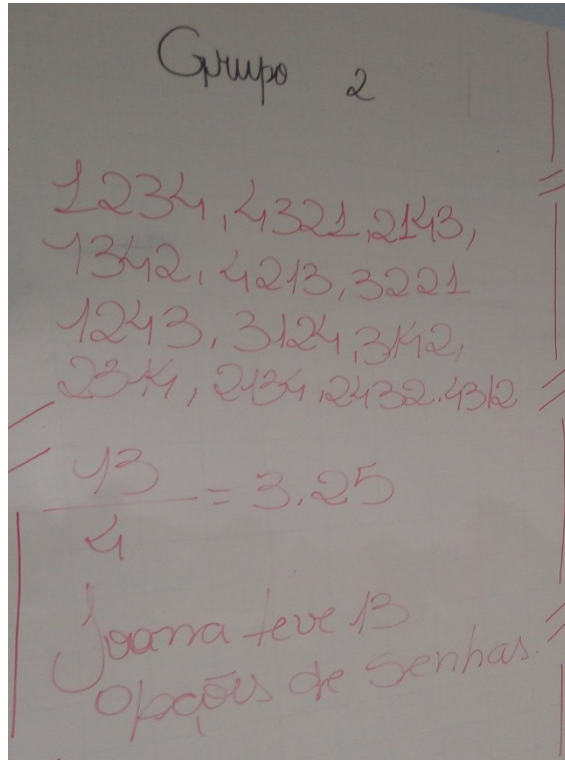 Grupo 2
1234, 4321, 2143,
1342, 4213, 3221
1243, 3124, 3142,
2314, 2134, 2432, 4312
13
4
= 3.25
Joana teve 13
opções de senhas.